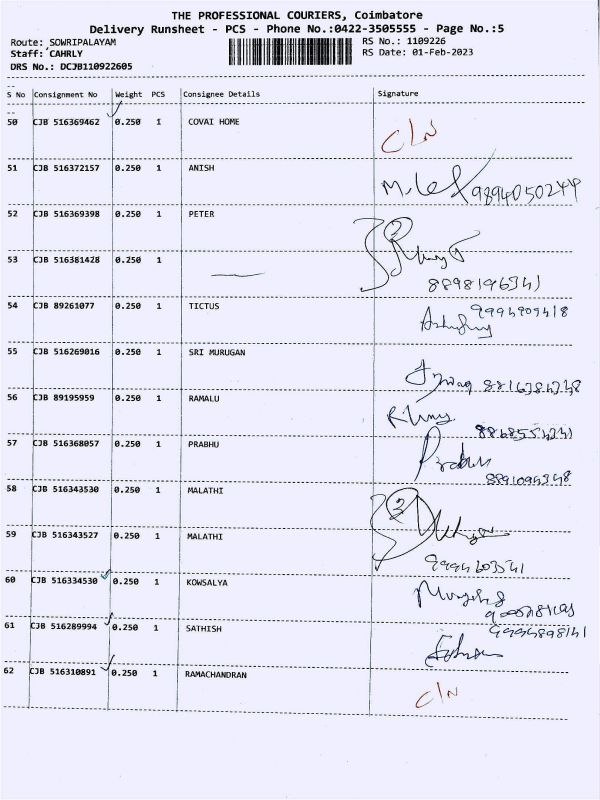 THE PROFESSIONAL COURIERS, Coimbatore
Delivery Runsheet - PCS - Phone No.:0422-3505555 - Page No.:5
Route: SOWRIPALAYAM RS No.: 1109226
Staff: CAHRLY RS Date: 01-Feb-2023
DRS No.: DCJB110922605
S No Consignment No Weight PCS Consignee Details Signature
50 CJB 516369462 0.250 1 COVAI HOME C/N
51 CJB 516372157 0.250 1 ANISH 9894050244
52 CJB 516369398 0.250 1 PETER
53 CJB 516381428 0.250 1
54 CJB 89261077 0.250 1 TICTUS
55 CJB 516269016 0.250 1 SRI MURUGAN
56 CJB 89195959 0.250 1 RAMALU
57 CJB 516368057 0.250 1 PRABHU
58 CJB 516343530 0.250 1 MALATHI
59 CJB 516343527 0.250 1 MALATHI
60 CJB 516334530 0.250 1 KOWSALYA
61 CJB 516289994 0.250 1 SATHISH
62 CJB 516310891 0.250 1 RAMACHANDRAN C/N